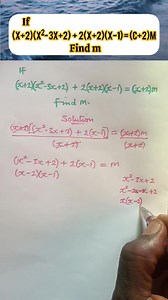 If
(X+2)(X²-3X+2)+2(X+2)(X-1)=(C+2)M
Find m
If
(x+2)(x²-3x+2)+2(x+2)(x-1)=(x+2)m
find m.
Solution
(x+2)[(x²-3x+2)+2(x-1)] = (x+2)m
(x+2) (x+2)
(x²-3x+2)+2(x-1) = m
(x-2)(x-1)
x²-3x+2
x²-2x-x+2
x(x-2)